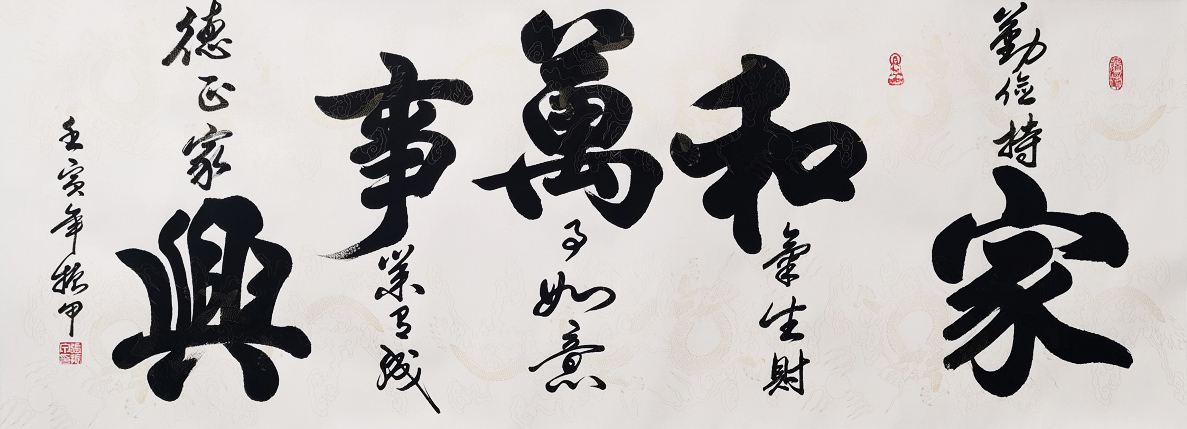 勤俭持家
和氣生財
萬事如意
事業有成
德正家興
壬寅年振甲